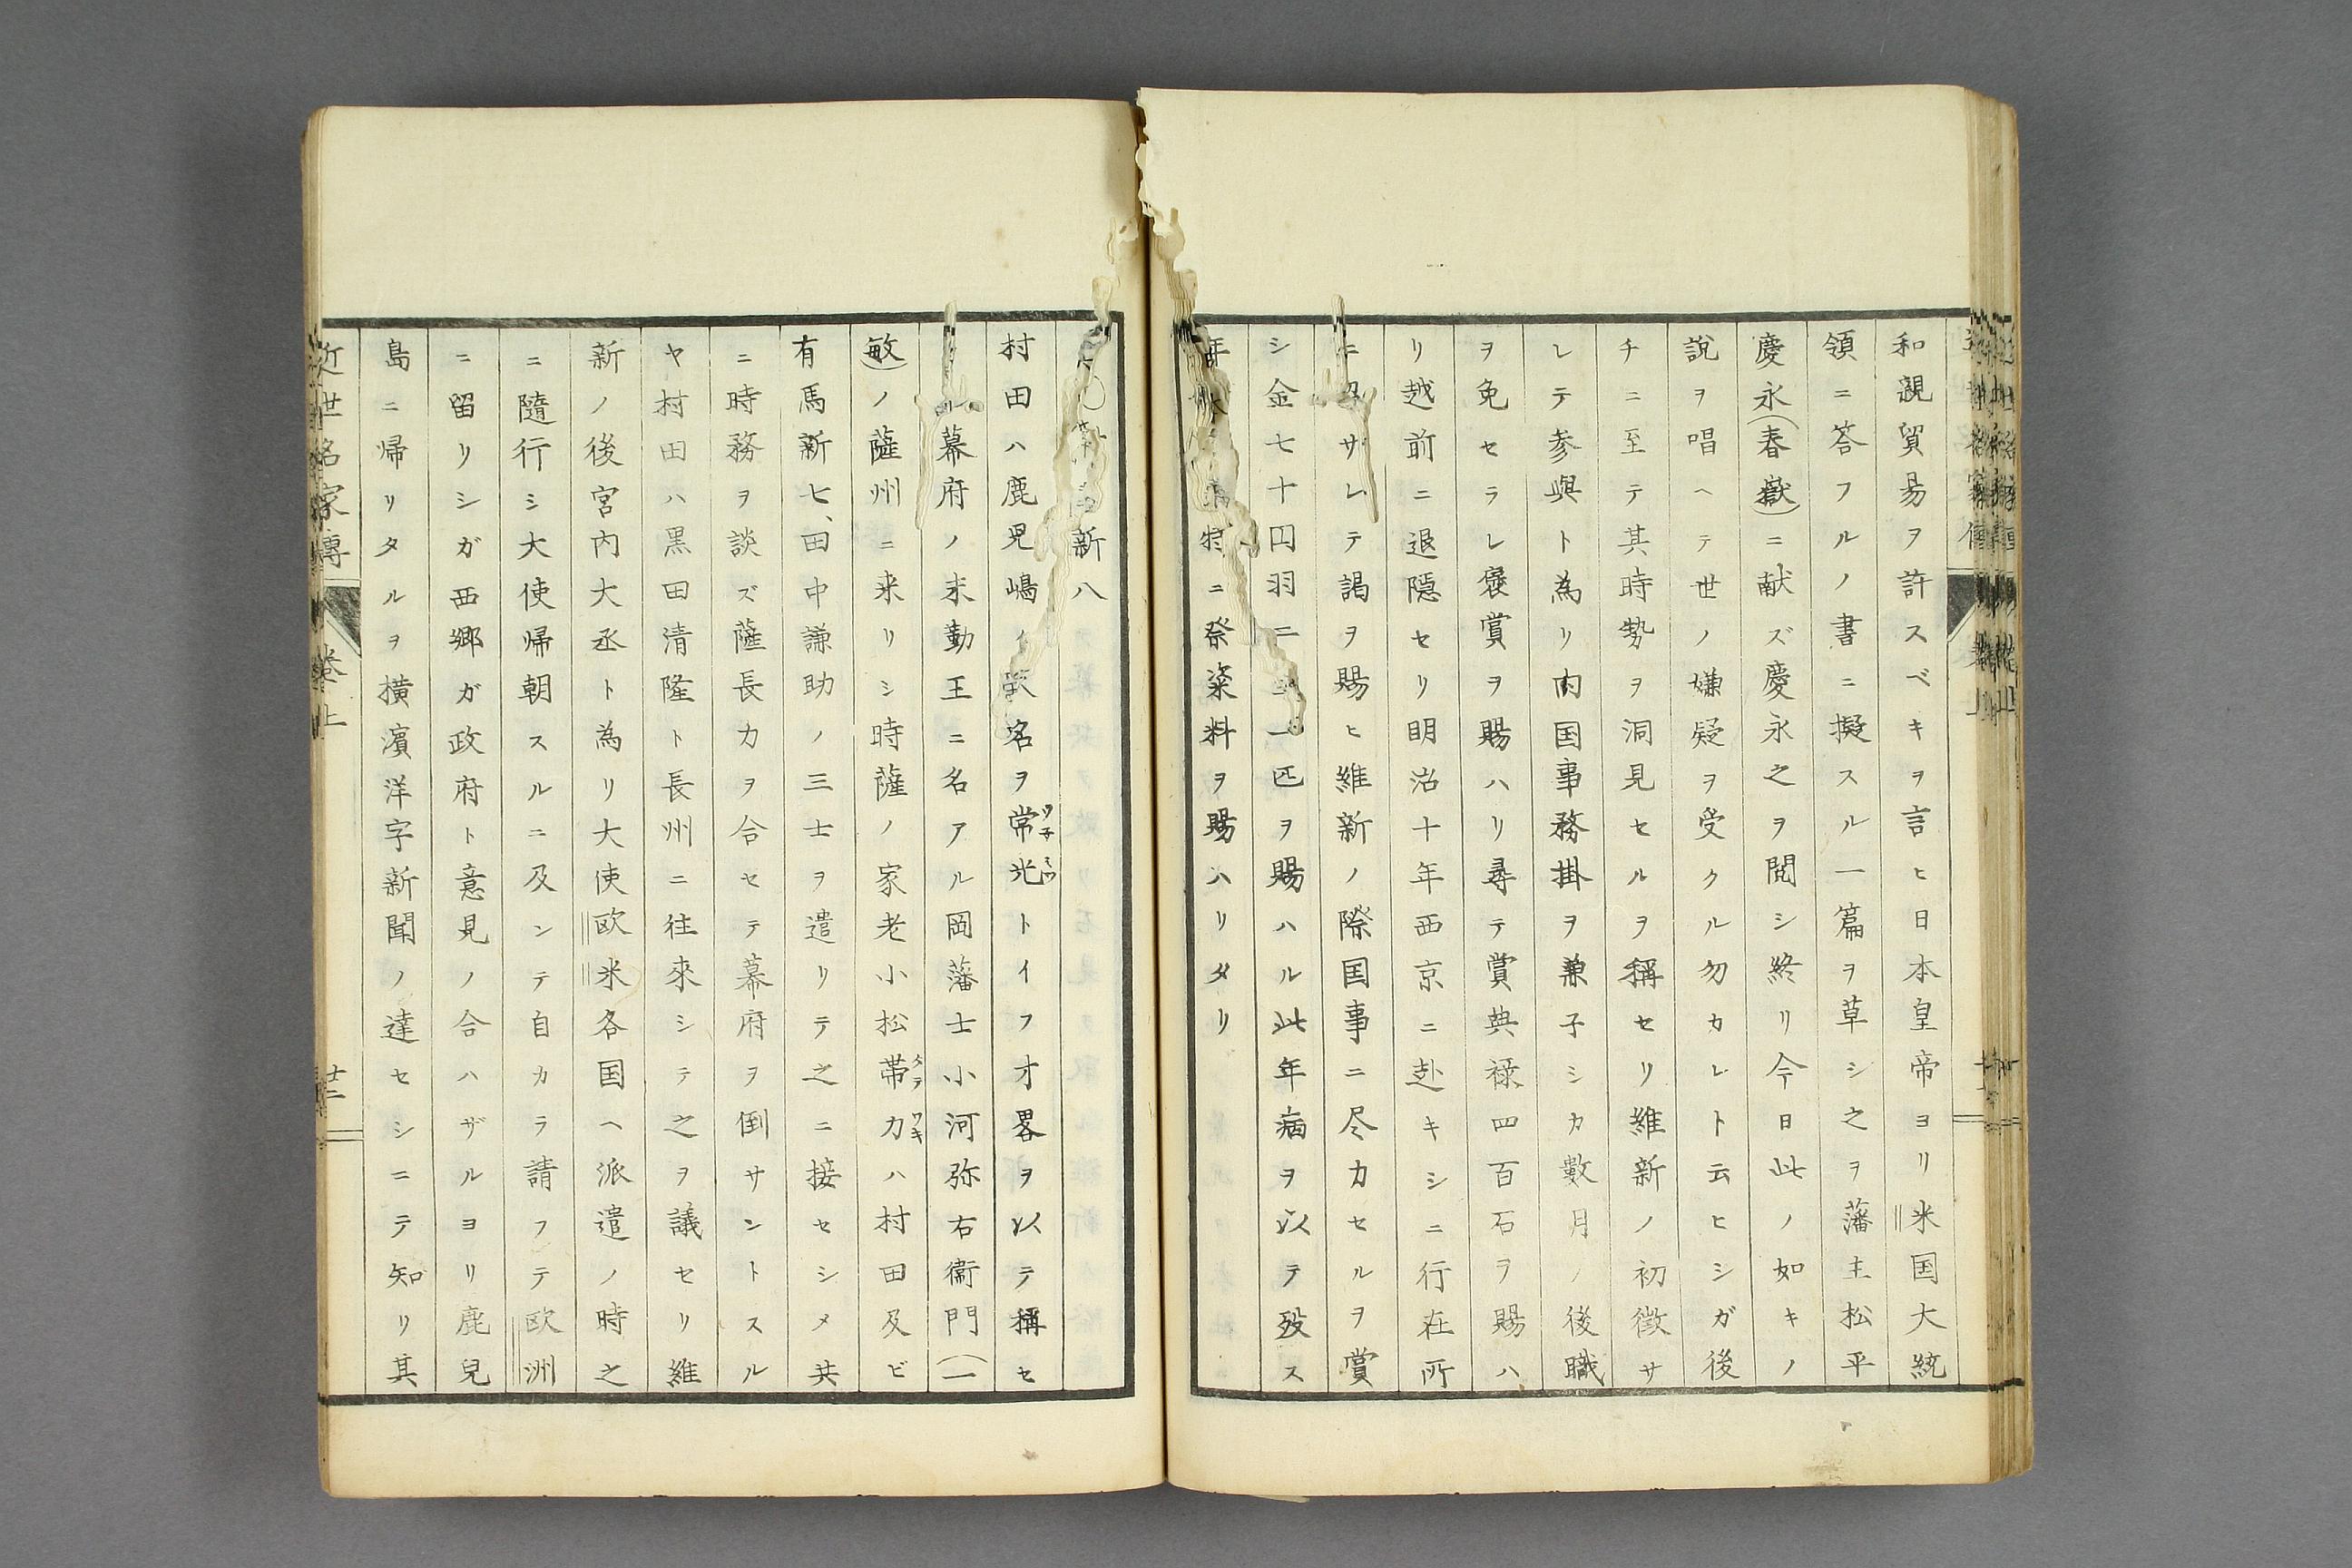 和親貿易ヲ許スベキヲ言ヒ日本皇帝ヨリ米国大統
領ニ答フルノ書ニ擬スル一篇ヲ草シ之ヲ藩主松平
慶永(春嶽)ニ献ズ慶永之ヲ閲シ終リ今日此ノ如キノ
説ヲ唱ヘテ世ノ嫌疑ヲ受クル勿カレト云ヒシガ後
チニ至テ其時勢ヲ洞見セルヲ稱セリ維新ノ初徴サ
レテ参與ト為リ内国事務掛ヲ兼子シカ數月ノ後職
ヲ免セラレ褒賞ヲ賜ハリ尋テ賞典禄四百石ヲ賜ハ
リ越前ニ退隠セリ明治十年西京ニ赴キシニ行在所
ニ召サレテ謁ヲ賜ヒ維新ノ際国事ニ尽力セルヲ賞
シ金七十円羽二一匹ヲ賜ハル此年病ヲ以テ歿ス
年特ニ祭粢料ヲ賜ハリタリ
新八
村田ハ鹿児嶋ノ名ヲ常光トイフオ畧ヲ以テ稱セ
ワ子ミツ
幕府ノ末勤王ニ名アル岡藩士小河弥右衞門(一
敏)ノ薩州ニ来リシ時薩ノ家老小松帯力ハ村田及ビ
タテワキ
有馬新七、田中謙助ノ三士ヲ遣リテ之ニ接セシメ共
ニ時務ヲ談ズ薩長力ヲ合セテ幕府ヲ倒サントスル
ヤ村田ハ黒田清隆ト長州ニ往來シテ之ヲ議セリ維
新ノ後宮内大丞ト為リ大使欧米各国ヘ派遣ノ時之
ニ隨行シ大使帰朝スルニ及ンテ自カラ請フテ欧洲
ニ留リシガ西郷ガ政府ト意見ノ合ハザルヨリ鹿兒
島ニ帰リタルヲ横濱洋字新聞ノ達セシニテ知リ其
近世名家傳 巻上 十二